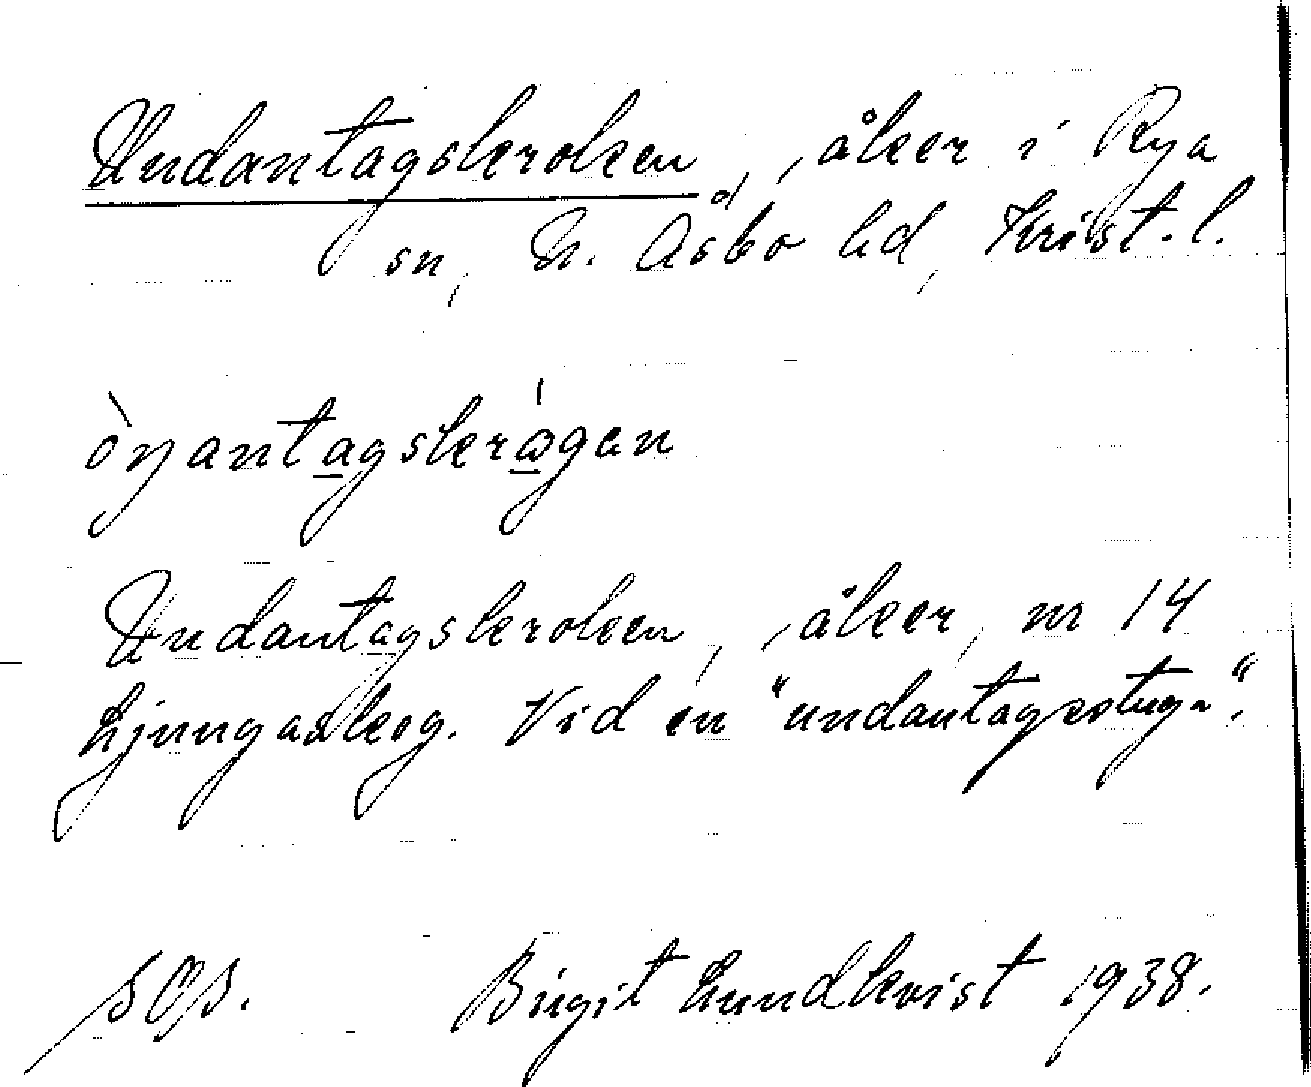 Undantagskroken, åker i Rya
sn, N. Åsbo hd, Krist. l.
ò̀ŋantagskrǻgen
Undantagskroken, åker, nr 14
Ljungaskog. Vid en "undantagsstuga".
Birgit Lundkvist 1938.